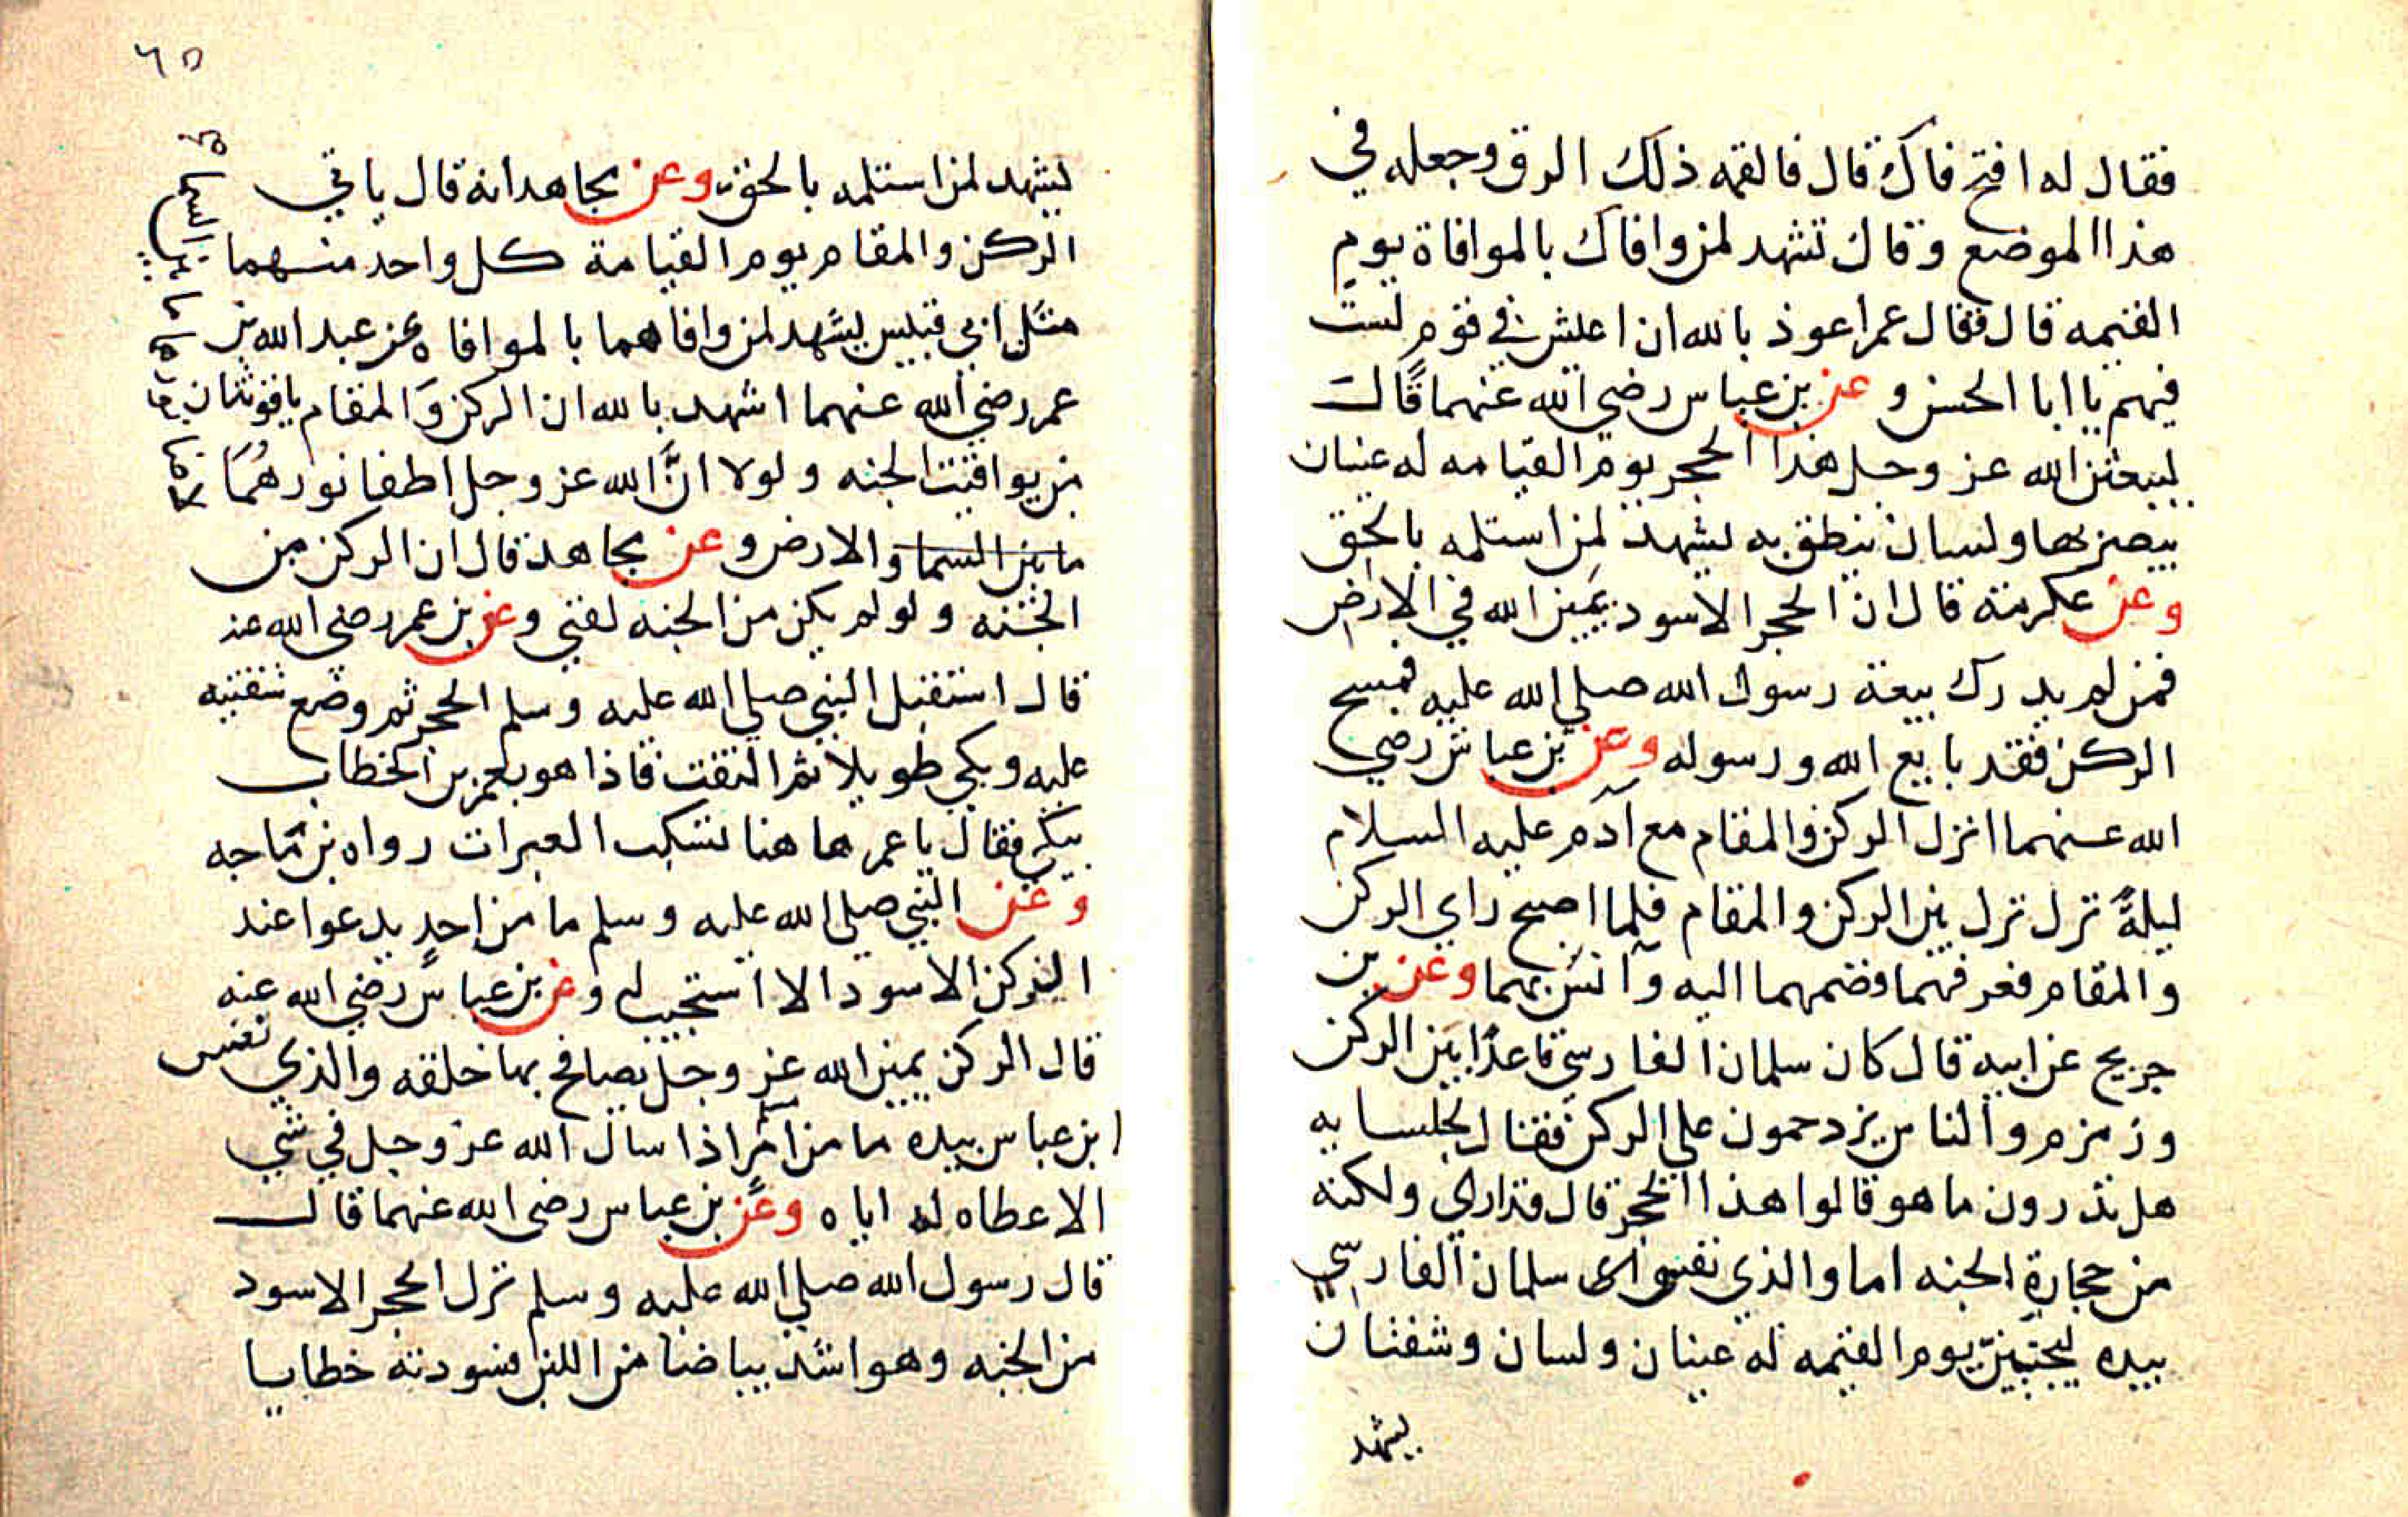 فقال له افتح فاك قال فالقمه ذلك الرق وجعله في
هذا الموضع وقال تشهد لمن وافاك بالموافاة يوم
القيمه قال فقال عمر اعوذ بالله ان اعيش في قوم لست
فيهم يا ابا الحسن وعن بن عباس رضي الله عنهما قال
ليبعثن الله عز وجل هذا الحجر يوم القيامه له عينان
يبصر بها ولسان ينطق به يشهد لمن استلمه بالحق
وعن عكرمة قال ان الحجر الاسود يمين الله في الارض
فمن لم يدرك بيعة رسول الله صلي الله عليه فمسح
الركن فقد بايع الله ورسوله وعن بن عباس رضي
الله عنهما انزل الركن والمقام مع آدم عليه السلام
ليلة نزل نزل بين الركن والمقام فلما اصبح راي الركن
والمقام فعرفهما فضمهما اليه وآنس بهما وعن بن
جريج عن ابيه قال كان سلمان الفارسي قاعدًا بين الركن
وزمزم والناس يزدحمون علي الركن فقال لجلسايه
هل تدرون ما هو قالوا هذا الحجر قال قد اري ولكنه
من حجارة الجنه اما والذي نفس سلمان الفارسي
بيده ليجيئن يوم القيمه له عينان ولسان وشفتان
يشهد
٦٥
ليشهد لمن استلمه بالحق وعن مجاهد انه قال ياتي
الركن والمقام يوم القيامة كل واحد منهما
مثل ابي قبيس يشهد لمن وافاهما بالموافاه وعن عبد الله بن
عمر رضي الله عنهما اشهد بالله ان الركن والمقام ياقوتتان
من يواقيت الجنه ولولا انَّ الله عز وجل اطفا نورهُمَا
ما بين السما والارض وعن مجاهد قال ان الركن من
الجنه ولو لم يكن من الجنه لفني وعن بن عمر رضي الله عنه
قال استقبل النبي صلي الله عليه وسلم الحجر ثم وضع شفتيه
عليه وبكي طويلا ثم التفت فاذا هو بعمر بن الخطاب
يبكي فقال يا عمر هاهنا تسكب العبرات رواه بن ماجه
وعن النبي صلي الله عليه وسلم ما من احدٍ يدعوا عند
الركن الاسود الا استجيب له وعن بن عباس رضي الله عنه
قال الركن يمين الله عز وجل يصافح بها خلقه والذي نفس
ابن عباس بيده ما من امرٍ اذا سال الله عز وجل في شي
الا عطاه له اياه وعن بن عباس رضي الله عنهما قال
قال رسول الله صلي الله عليه وسلم نزل الحجر الاسود
من الجنه وهو اشد بياضا من اللبن فسودته خطايا